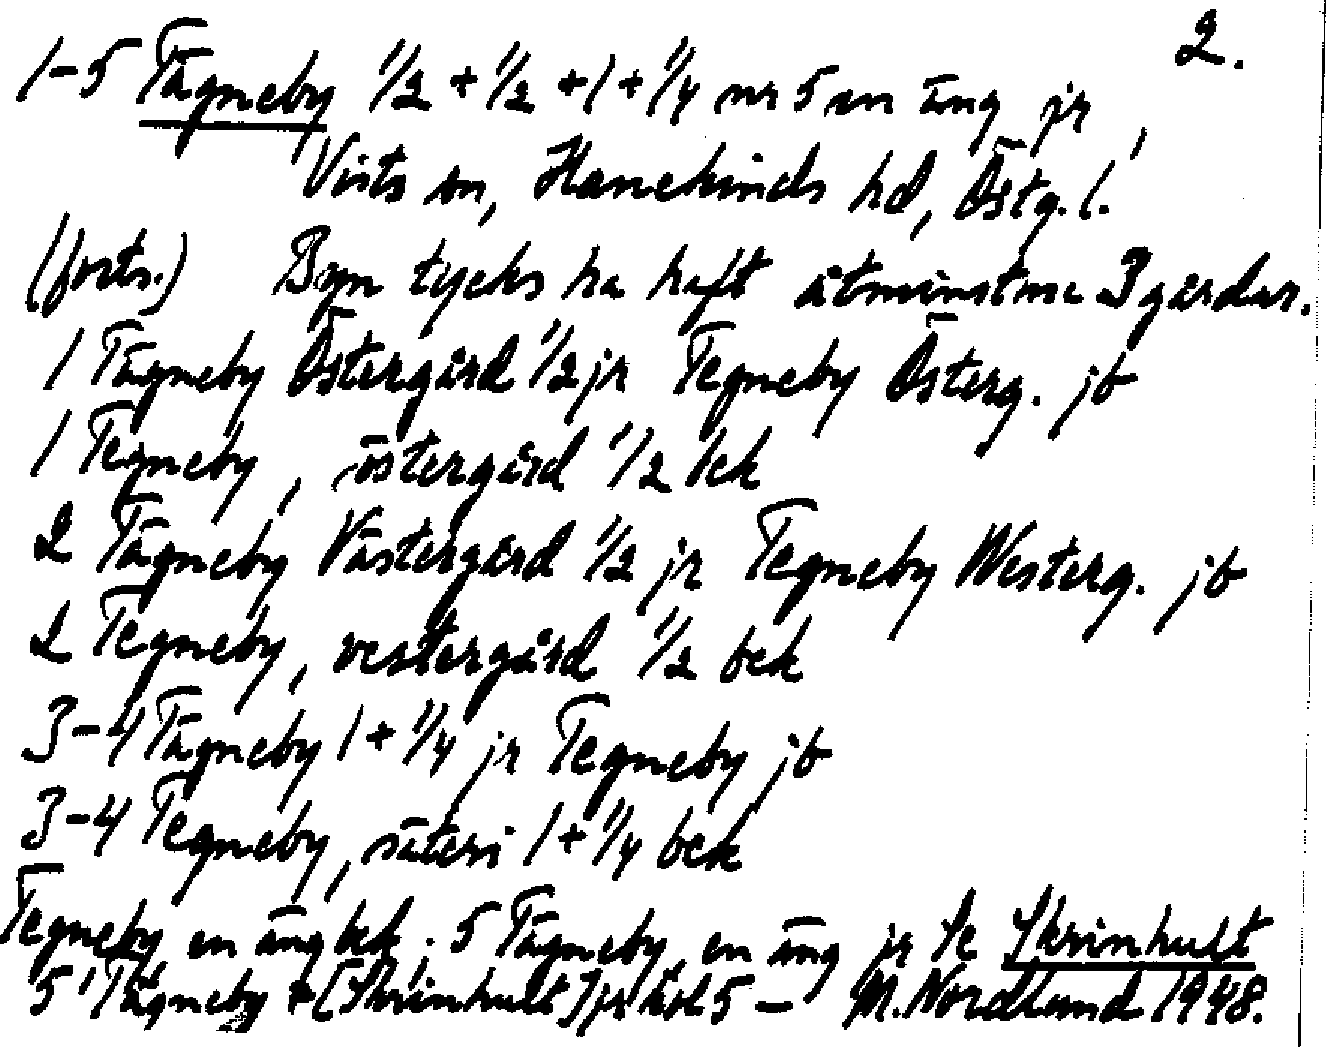 2.
1-5 Tägneby 1/2 + 1/2 + 1 + 1/4 nr 5 en äng jr,
Vists sn, Hanekinds hd, Östg. l.
(forts.) Byn tycks ha haft åtminstone 3 gårdar.
1 Tägneby Östergård 1/2 jr Tegneby Österg. jb
1 Tegneby, östergård 1/2 bek
2 Tägneby Västergård 1/2 jr Tegneby Westerg. jb
2 Tegneby, vestergård 1/2 bek
3-4 Tägneby 1 + 1/4 jr Tegneby jb
3-4 Tegneby, säteri 1 + 1/4 bek
Tegneby en äng bek; 5 Tägneby, en äng jr Se Skrinhult
5 Tägneby + [Skrinhult] jr 5 — M. Nordlund 1948.